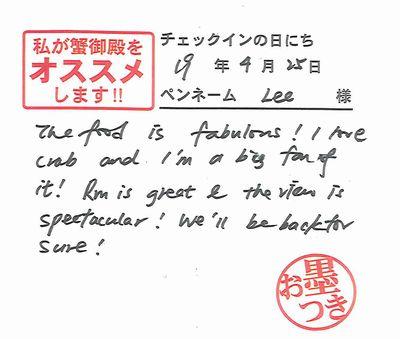 私が蟹御殿を
オススメ
します!!
チェックインの日にち
19 年 4 月 25 日
ペンネーム Lee 様
The food is fabulous! I love
crab and I'm a big fan of
it! Rm is great & the view is
spectacular! We'll be back for
sure!
お墨つき